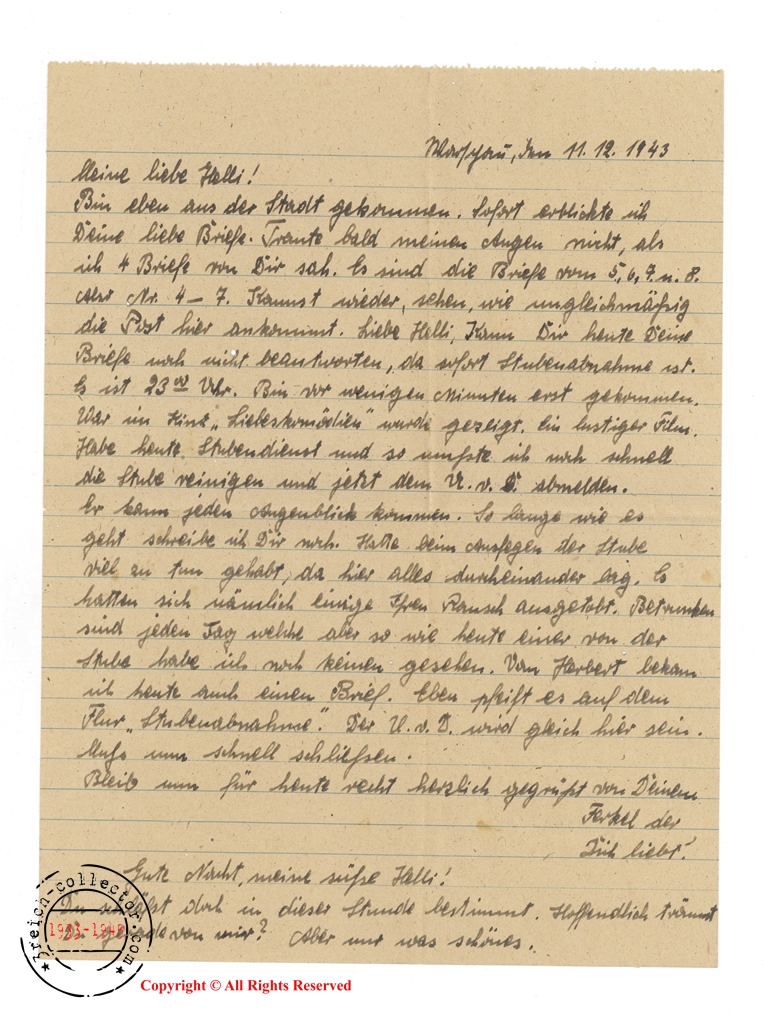 Warschau, den 11.12.1943
Meine liebe Helli!
Bin eben aus der Stadt gekommen. Sofort erblickte ich
Deine liebe Briefe. Traute bald meinen Augen nicht, als
ich 4 Briefe von Dir sah. Es sind die Briefe vom 5, 6, 7. u. 8.
Also Nr. 4 – 7. Kannst wieder, sehen, wie ungleichmäßig
die Post hier ankommt. Liebe Helli, Kann Dir heute Deine
Briefe noch nicht beantworten, da sofort Stubenabnahme ist.
Es ist 23 00 Uhr. Bin vor wenigen Minuten erst gekommen.
War im Kino „Liebeskomödien" wurde gezeigt. Ein lustiger Film.
Habe heute Stubendienst und so mußte ich noch schnell
die Stube reinigen und jetzt dem U. v. D. abmelden.
Er kann jeden Augenblick kommen. So lange wie es
geht schreibe ich Dir noch. Hatte beim Ausfegen der Stube
viel zu tun gehabt, da hier alles durcheinander lag. Es
hatten sich nämlich einige Ihren Rausch ausgetobt. Betrunken
sind jeden Tag welche aber so wie heute einer von der
Stube habe ich noch keinen gesehen. Von Herbert bekam
ich heute auch einen Brief. Eben pfeift es auf dem
Flur „Stubenabnahme". Der U. v. D. wird gleich hier sein.
Muß nun schnell schließen.
Bleib nun für heute recht herzlich gegrüßt von Deinem
Ferkel der
Dich liebt!
Gute Nacht, meine süße Helli!
Du doch in dieser Stunde bestimmt. Hoffendlich träumst
Du gerade von mir? Aber nur was schönes.
3reich-collector.com
1933-1945
Copyright © All Rights Reserved